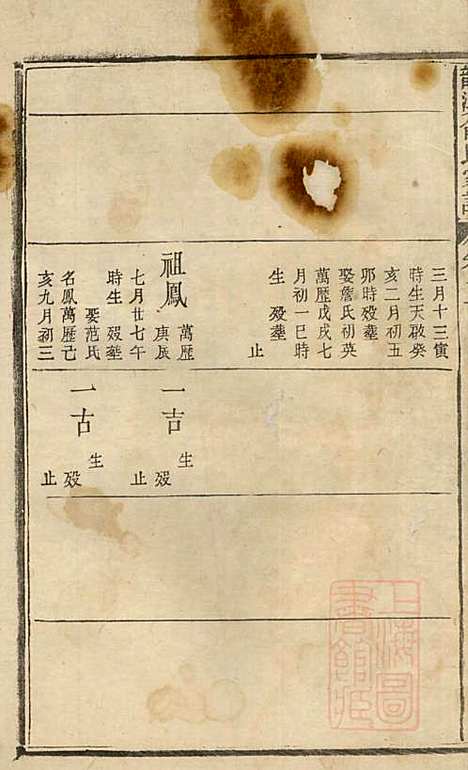 三月十三寅
時生天啟癸
亥二月初五
卯時歿葬
娶詹氏初英
萬歷戊戌七
月初一巳時
生 歿葬
止
祖鳳 萬歷
庚辰
七月廿七午
時生 歿葬
娶范氏
名鳳萬歷己
亥九月初三
一吉 生
歿
止
一古 生
歿
止
上海圖
書館藏